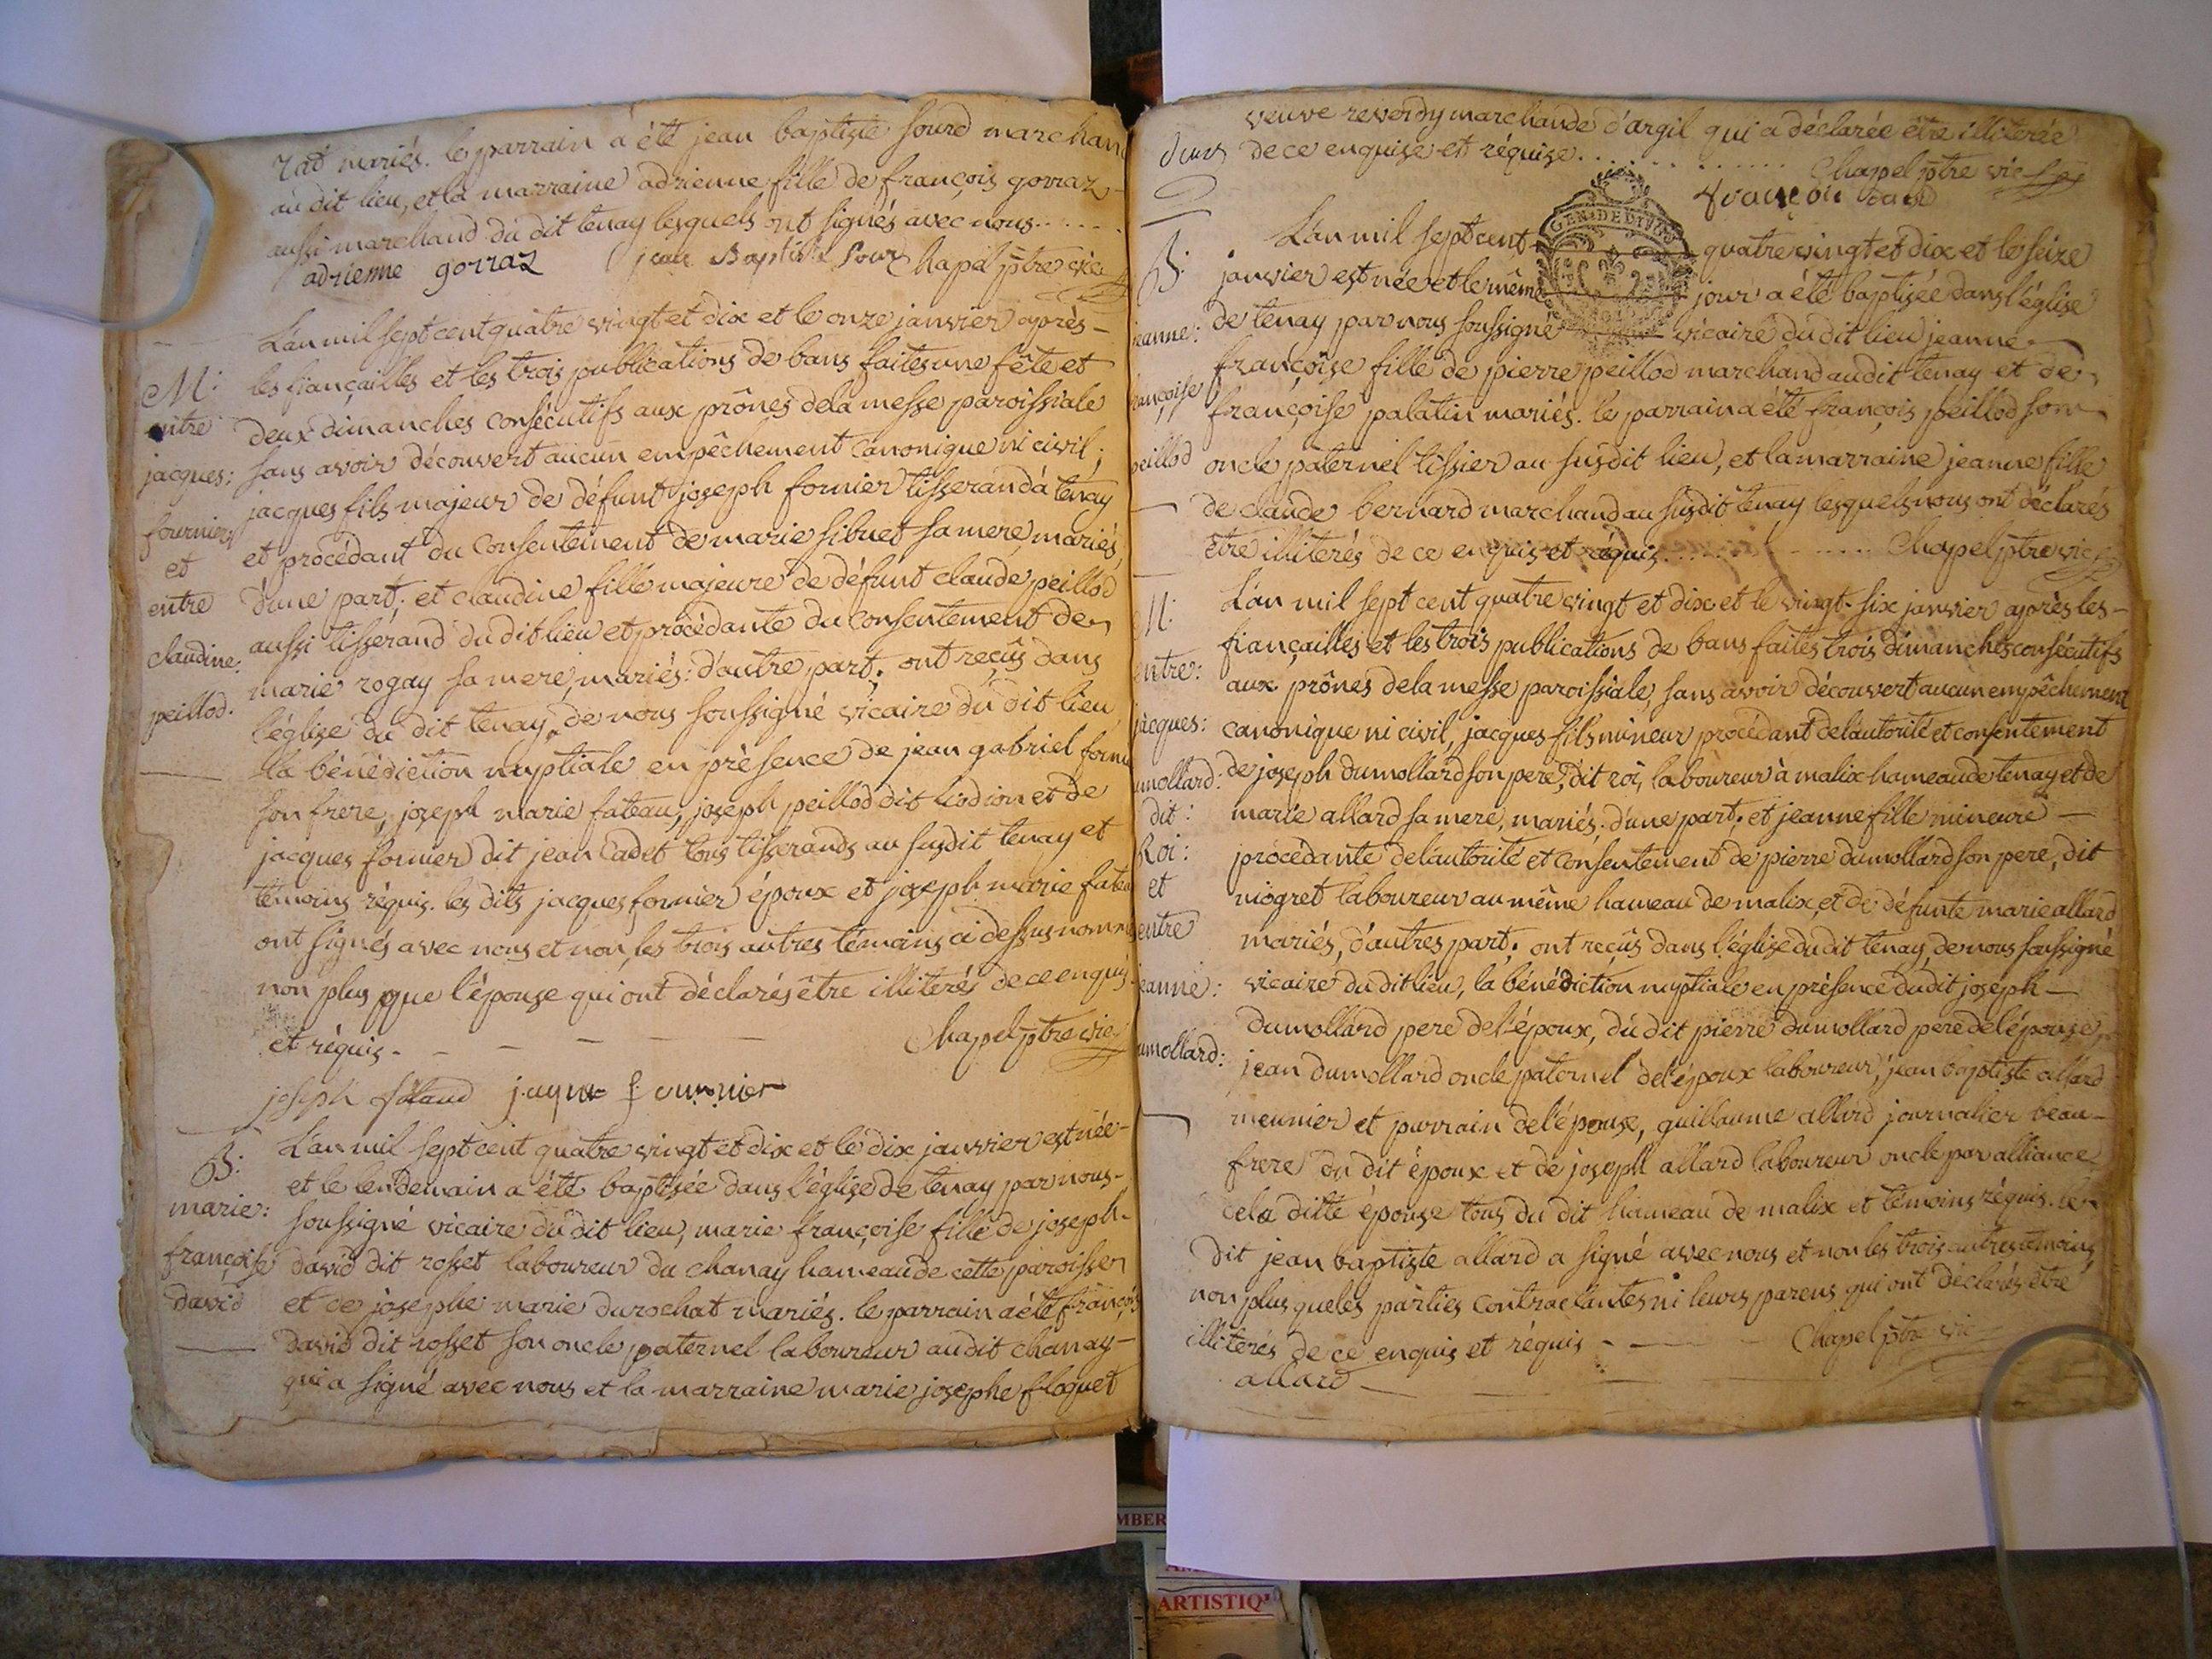 rat mariés. le parrain a été jean baptiste sourd marchand
au dit lieu, et la marraine adrienne fille de françois gorraz
aussi marchand du dit tenay lesquels ont signés avec nous.....
adrienne gorraz jean Baptiste Sourd Chapel ptre vic
L'an mil sept cent quatre vingt et dix et le onze janvier après
les fiançailles et les trois publications de bans faites une fête et
deux dimanches consécutifs aux prônes de la messe paroissiale
sans avoir découvert aucun empêchement canonique ni civil;
jacques fils majeur de défunt joseph fornier tisserand à tenay
et procédant du consentement de marie sibuet sa mere, mariés,
d'une part; et claudine fille majeure de défunt claude peillod
aussi tisserand du dit lieu et procédante du consentement de
marie rogay sa mere, mariés: d'autre part; ont reçûs dans
l'église du dit tenay, de nous soussigné vicaire du dit lieu
la bénédiction nuptiale en présence de jean gabriel forni
son frere, joseph marie fateau, joseph peillod dit liodion et de
jacques fornier dit jean Cadet tous tisserands au susdit tenay et
témoins réquis. les dits jacques fornier époux et joseph marie fatea
ont signés avec nous et non, les trois autres témoins ci dessus nommé
non plus que l'épouse qui ont déclarés être illiterés de ce enquis
et réquis. Chapel ptre vic
joseph jaque fournier
M:
entre
jacques:
fournier
et
entre
claudine:
peillod.
L'an mil sept cent quatre vingt et dix et le dix janvier est née
et le lendemain a été baptisée dans l'église de tenay par nous
soussigné vicaire du dit lieu, marie françoise fille de joseph
david dit rosset laboureur du chanay hameau de cette paroisse
et de josephe marie durochat mariés. le parrain a été françois
david dit rosset son oncle paternel laboureur au dit chanay
qui a signé avec nous et la marraine marie josephe floquet
B:
marie:
françoise
david
veuve reverdy marchande d'argil qui a déclarée être illiterée
de ce enquise et réquise.............. Chapel ptre vic
françoi david
GEN. DE DIJON
L'an mil sept cent quatre vingt et dix et le seize
janvier est née et le même jour a été baptisée dans l'église
de tenay par nous soussigné vicaire du dit lieu jeanne
françoise fille de pierre peillod marchand audit tenay et de
françoise palatin mariés. le parrain a été françois peillod son
oncle paternel tissier au susdit lieu, et la marraine jeanne fille
de claude bernard marchand au susdit tenay lesquels nous ont déclarés
être illiterés de ce enquis et réquis............ Chapel ptre vic
B:
jeanne:
françoise
peillod
L'an mil sept cent quatre vingt et dix et le vingt-six janvier après les
fiançailles et les trois publications de bans faites trois dimanches consécutifs
aux prônes de la messe paroissiale, sans avoir découvert aucun empêchement
canonique ni civil, jacques fils mineur procédant de l'autorité et consentement
de joseph dumollard son pere, dit roi, laboureur à malix hameau de tenay et de
marie allard sa mere, mariés, d'une part; et jeanne fille mineure
procédante de l'autorité et consentement de pierre dumollard son pere, dit
niogret laboureur au même hameau de malix, et de défunte marie allard
mariés, d'autres part; ont reçûs dans l'église du dit tenay, de nous soussigné
vicaire du dit lieu, la bénédiction nuptiale en présence du dit joseph
dumollard pere de l'époux, du dit pierre dumollard pere de l'épouse,
jean dumollard oncle paternel de l'époux laboureur, jean baptiste allard
meunier et parrain de l'épouse, guillaume allard journalier beau-
frere du dit époux et de joseph allard laboureur oncle par alliance
de la ditte épouse tous du dit hameau de malix et témoins réquis. le
dit jean baptiste allard a signé avec nous et non les trois autres témoins
non plus que les parties contractantes ni leurs parens qui ont déclarés être
illiterés de ce enquis et réquis Chapel ptre vic
allard
M:
entre:
jacques:
umollard:
dit:
Roi:
et
entre
jeanne:
umollard:
ARTISTIQ